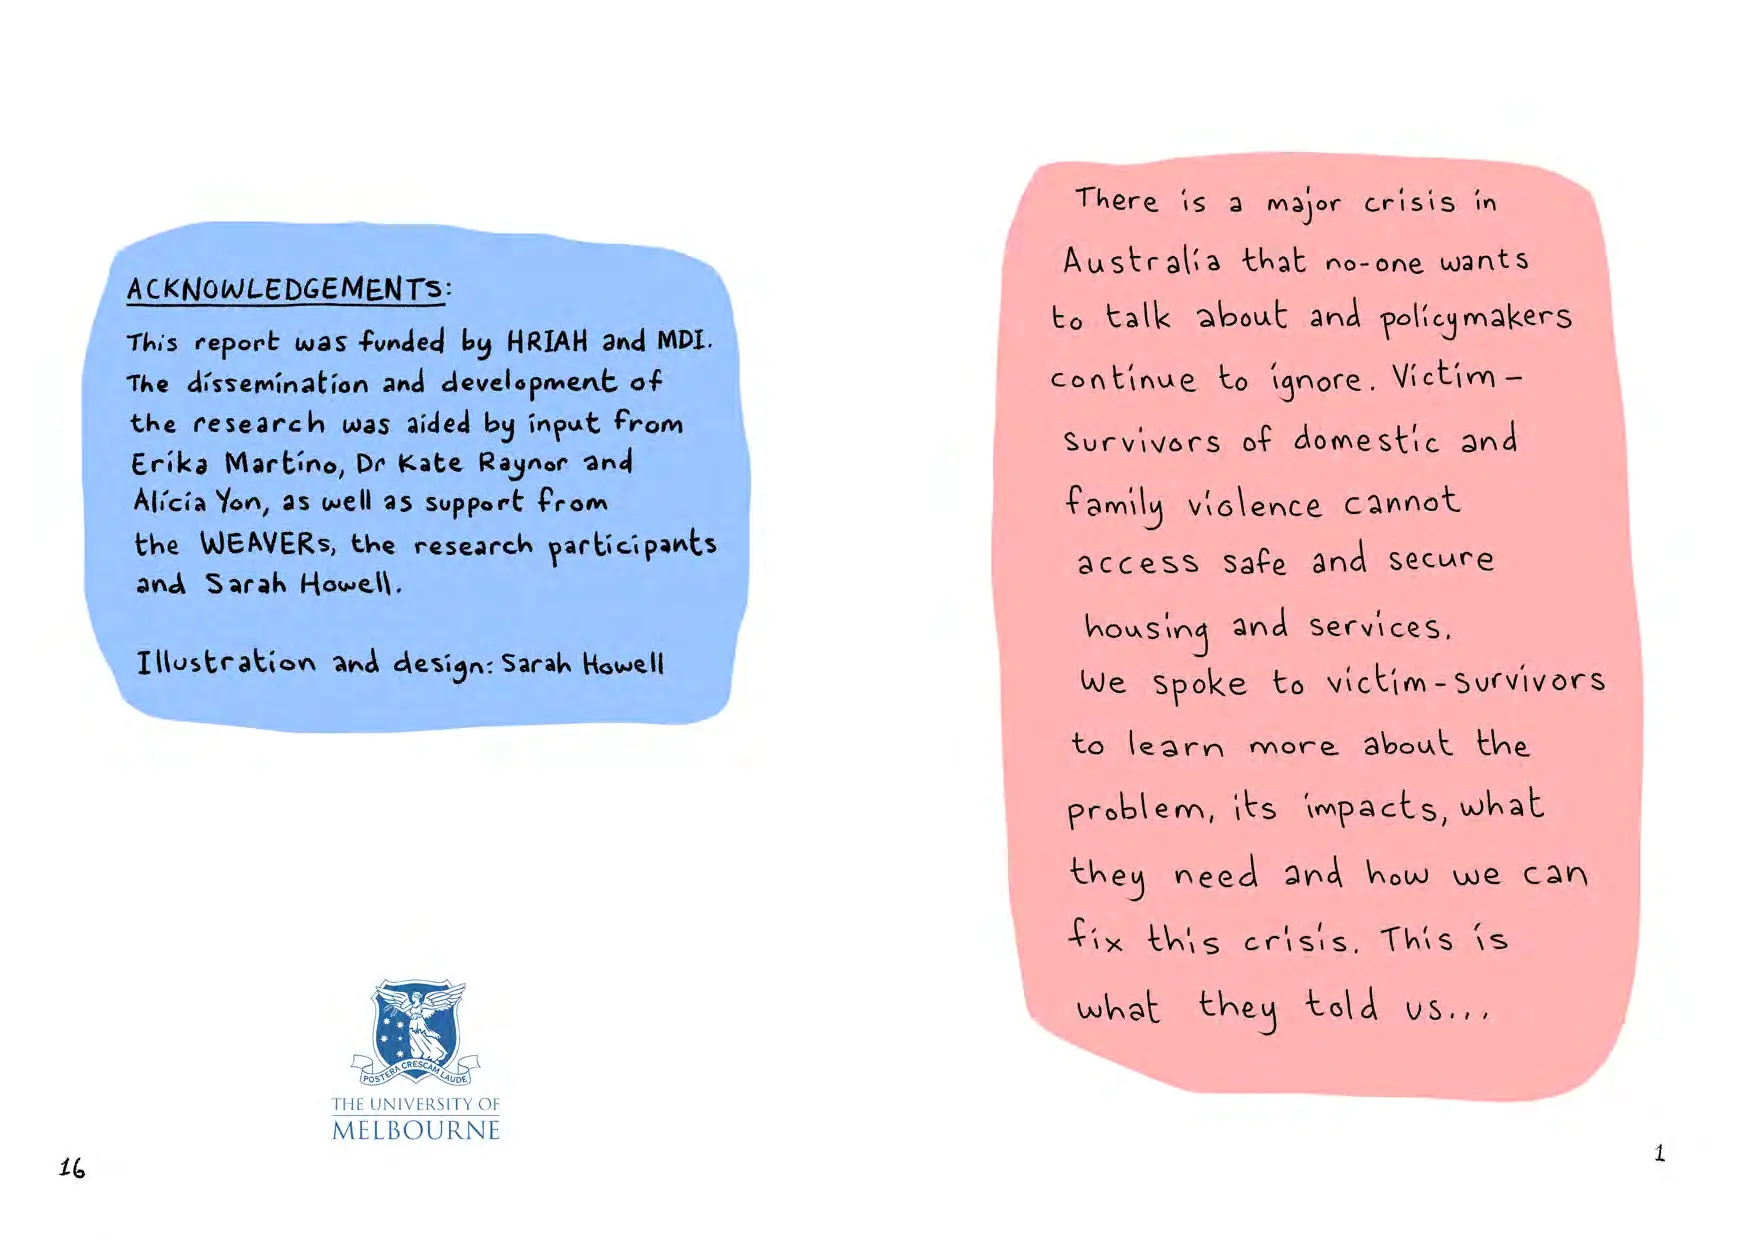 ACKNOWLEDGEMENTS:
This report was funded by HRIAH and MDI.
The dissemination and development of
the research was aided by input from
Erika Martino, Dr Kate Raynor and
Alicia Yon, as well as support from
the WEAVERs, the research participants
and Sarah Howell.
Illustration and design: Sarah Howell
POSTERA CRESCAM LAUDE
THE UNIVERSITY OF
MELBOURNE
16
There is a major crisis in
Australia that no-one wants
to talk about and policymakers
continue to ignore. Victim-
survivors of domestic and
family violence cannot
access safe and secure
housing and services.
We spoke to victim-survivors
to learn more about the
problem, its impacts, what
they need and how we can
fix this crisis. This is
what they told us...
1